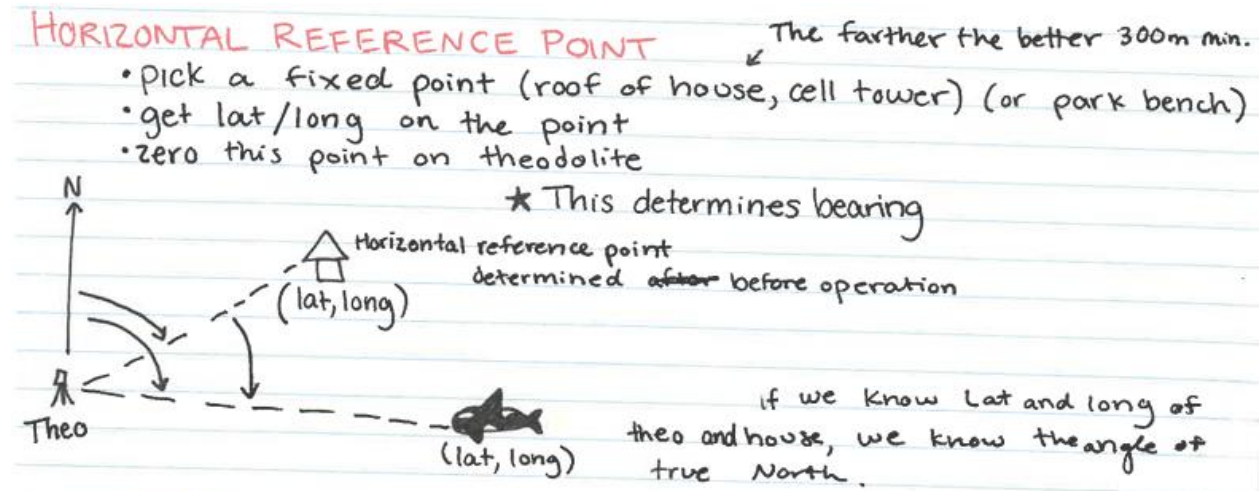 HORIZONTAL REFERENCE POINT
The farther the better 300m min.
• pick a fixed point (roof of house, cell tower) (or park bench)
• get lat/long on the point
• zero this point on theodolite
★ This determines bearing
N
Horizontal reference point
determined after before operation
(lat, long)
Theo
(lat, long)
if we know Lat and long of
theo and house, we know the angle of
true North.